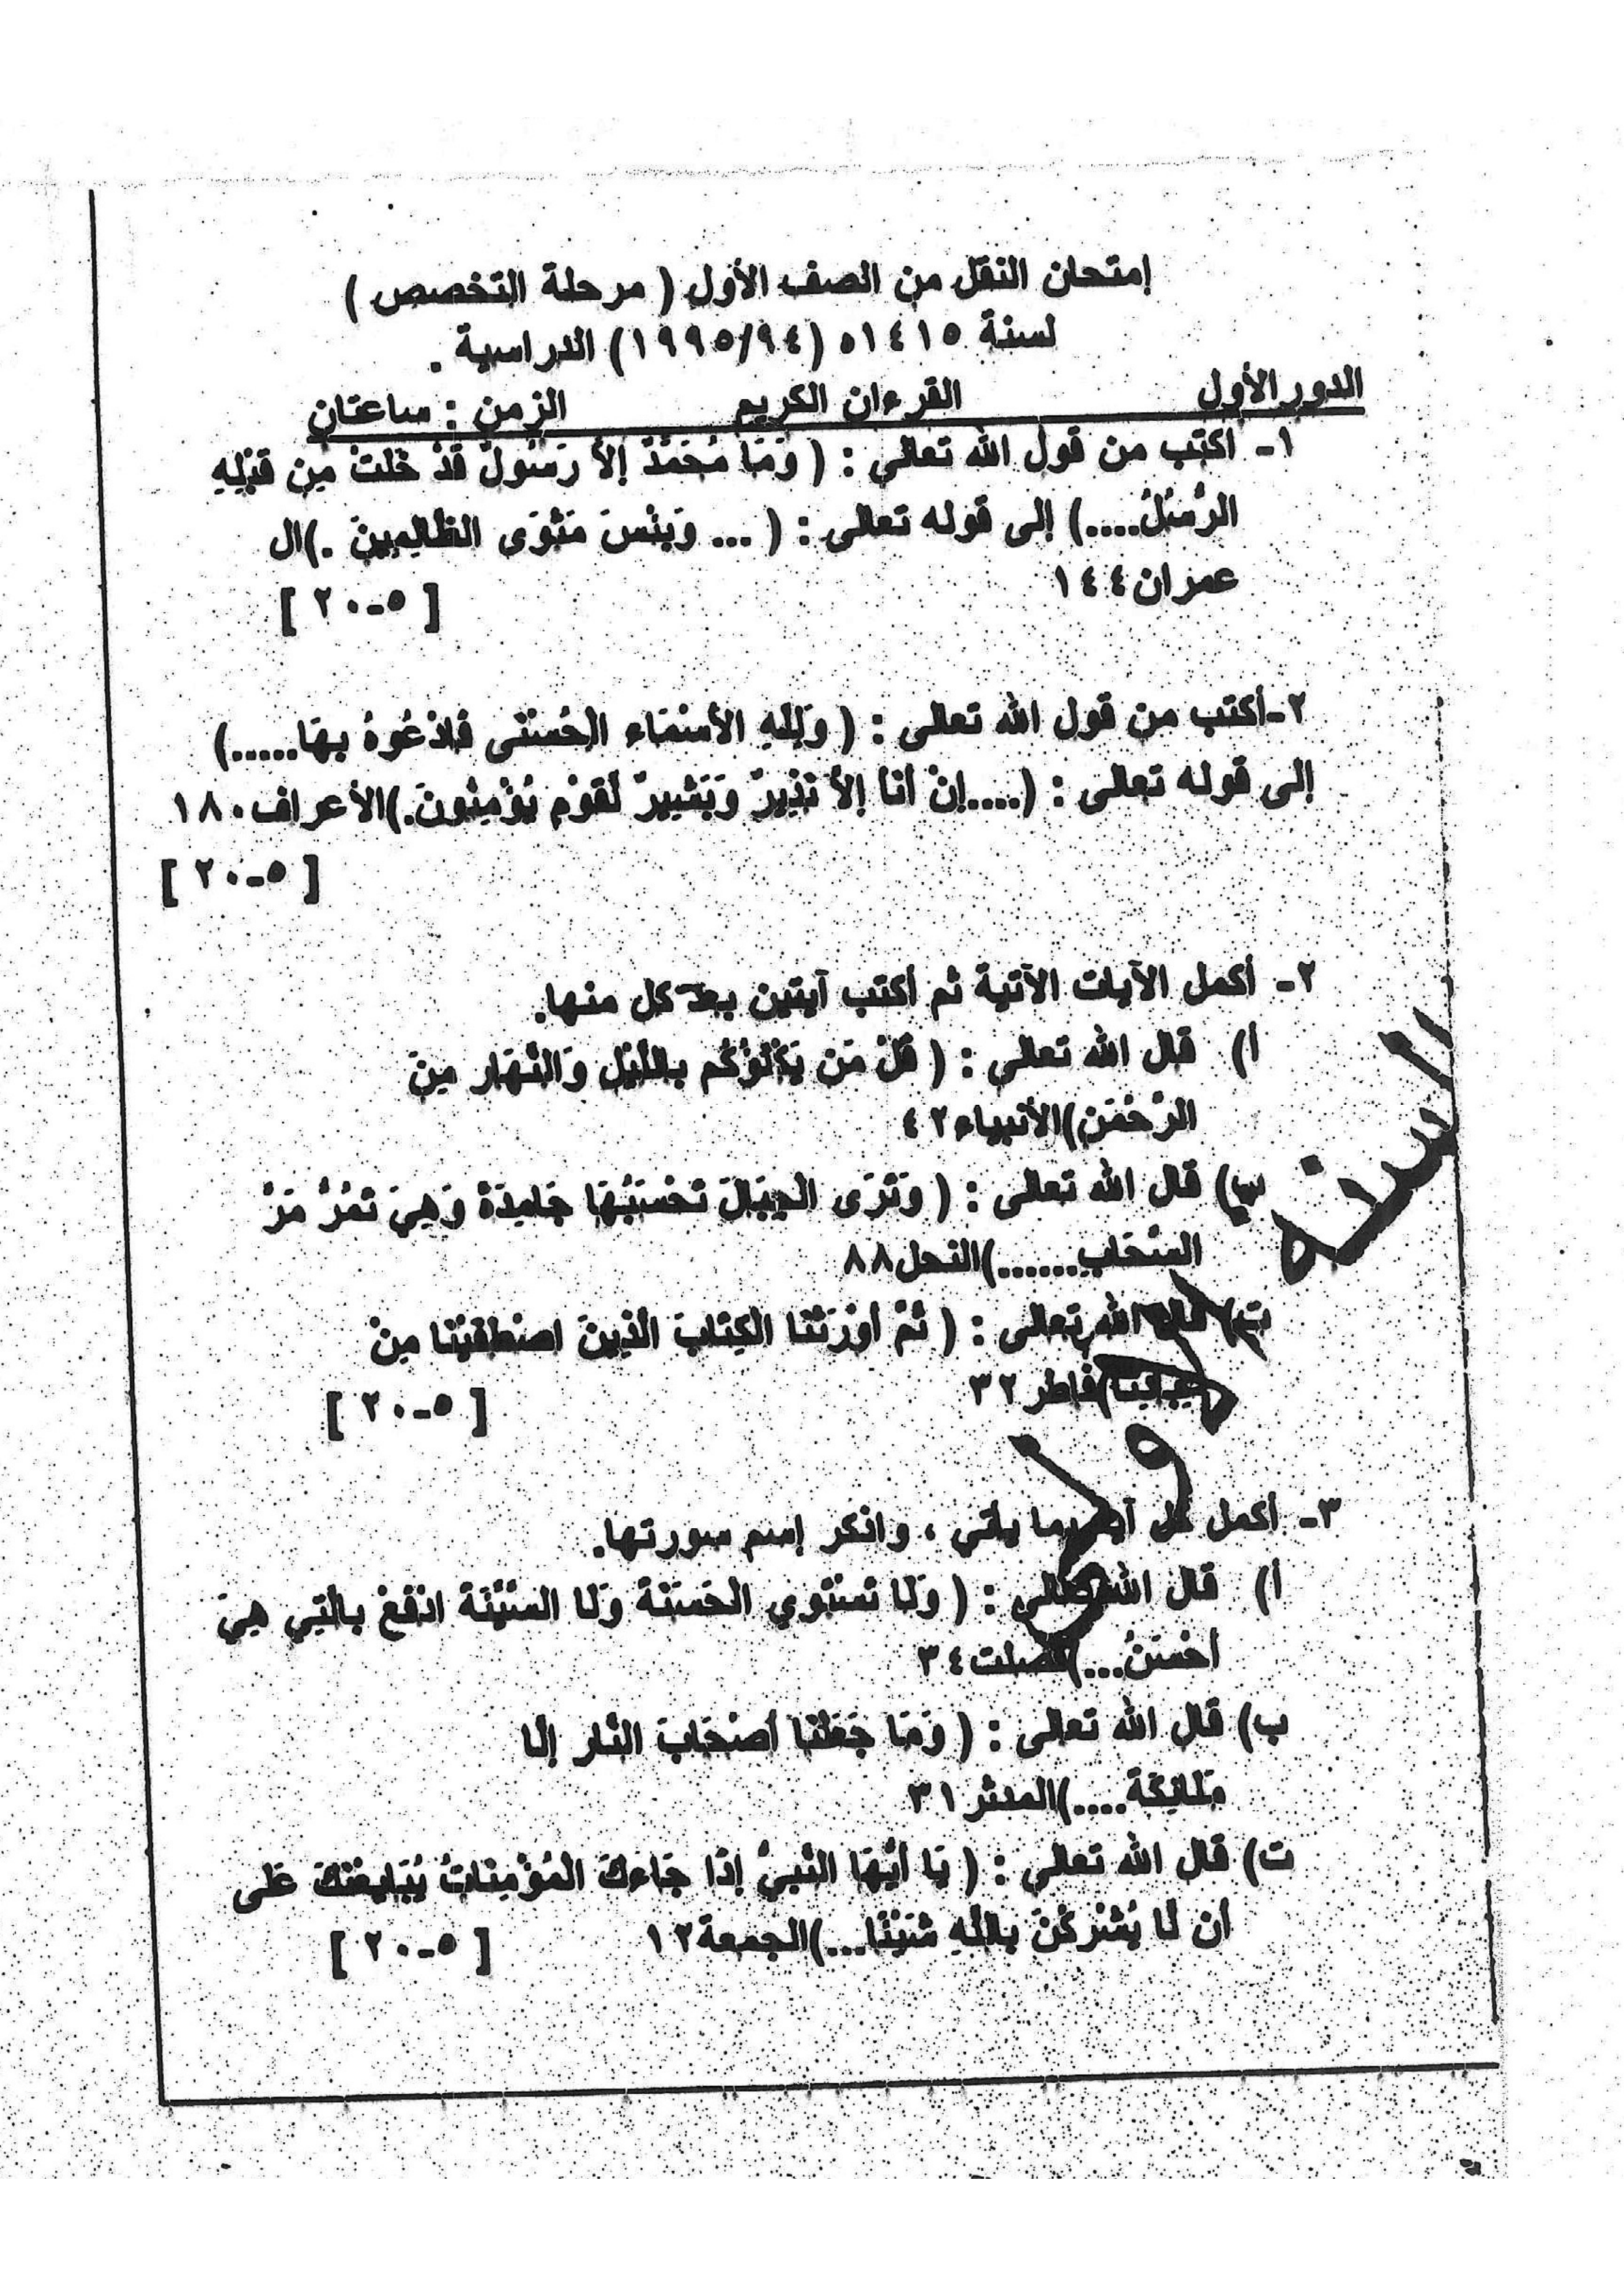 إمتحان النقل من الصف الأول ( مرحلة التخصص )
لسنة ١٤١٥ه (١٩٩٥/٩٤) الدراسية .
الدور الأول القرءان الكريم الزمن : ساعتان
١- أكتب من قول الله تعالى : ( وَمَا مُحَمَّدٌ إِلاَّ رَسُولٌ قَدْ خَلَتْ مِن قَبْلِهِ
الرُّسُلُ....) إلى قوله تعالى : ( ... وَبِئْسَ مَثْوَى الظَّالِمِينَ .)ال
عمران١٤٤
[ ٥-٢٠ ]
٢-أكتب من قول الله تعالى : ( وَلِلّهِ الأَسْمَاء الْحُسْنَى فَادْعُوهُ بِهَا.....)
إلى قوله تعالى : (....إِنْ أَنَاْ إِلاَّ نَذِيرٌ وَبَشِيرٌ لِّقَوْمٍ يُؤْمِنُونَ.)الأعراف١٨٠
[ ٥-٢٠ ]
٢- أكمل الآيات الآتية ثم أكتب آيتين بعد كل منها.
أ) قال الله تعالى : ( قُلْ مَن يَكْلَؤُكُم بِاللَّيْلِ وَالنَّهَارِ مِنَ
الرَّحْمَنِ)الأنبياء٤٢
ب) قال الله تعالى : ( وَتَرَى الْجِبَالَ تَحْسَبُهَا جَامِدَةً وَهِيَ تَمُرُّ مَرَّ
السَّحَابِ......)النحل٨٨
ت) قال الله تعالى : ( ثُمَّ أَوْرَثْنَا الْكِتَابَ الَّذِينَ اصْطَفَيْنَا مِنْ
عِبَادِنَا)فاطر٣٢
[ ٥-٢٠ ]
٣- أكمل كل آية مما يأتي ، واذكر إسم سورتها.
أ) قال الله تعالى : ( وَلَا تَسْتَوِي الْحَسَنَةُ وَلَا السَّيِّئَةُ ادْفَعْ بِالَّتِي هِيَ
أَحْسَنُ...)فصلت٣٤
ب) قال الله تعالى : ( وَمَا جَعَلْنَا أَصْحَابَ النَّارِ إِلَّا
مَلَائِكَةً....)المدثر٣١
ت) قال الله تعالى : ( يَا أَيُّهَا النَّبِيُّ إِذَا جَاءكَ الْمُؤْمِنَاتُ يُبَايِعْنَكَ عَلَى
أَن لَّا يُشْرِكْنَ بِاللَّهِ شَيْئًا...)الجمعة١٢
[ ٥-٢٠ ]
السنة
الأولى